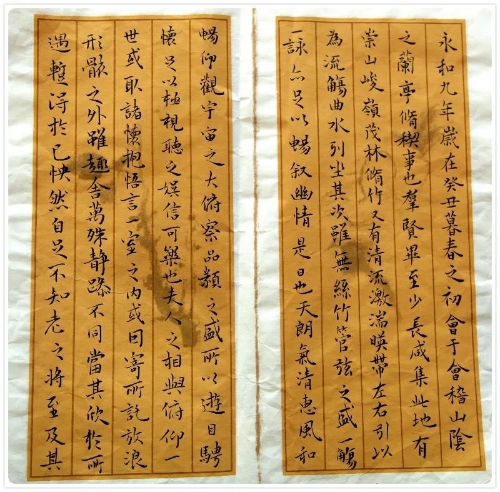 永和九年歲在癸丑暮春之初會于會稽山陰
之蘭亭脩稧事也羣賢畢至少長咸集此地有
崇山峻嶺茂林脩竹又有清流激湍暎帶左右引以
為流觴曲水列坐其次雖無絲竹管弦之盛一觴
一詠亦足以暢叙幽情是日也天朗氣清惠風和
暢仰觀宇宙之大俯察品類之盛所以遊目騁
懷足以極視聽之娛信可樂也夫人之相與俯仰一
世或取諸懷抱悟言一室之內或因寄所託放浪
形骸之外雖趣舍萬殊靜躁不同當其欣於所
遇蹔得於己怏然自足不知老之將至及其